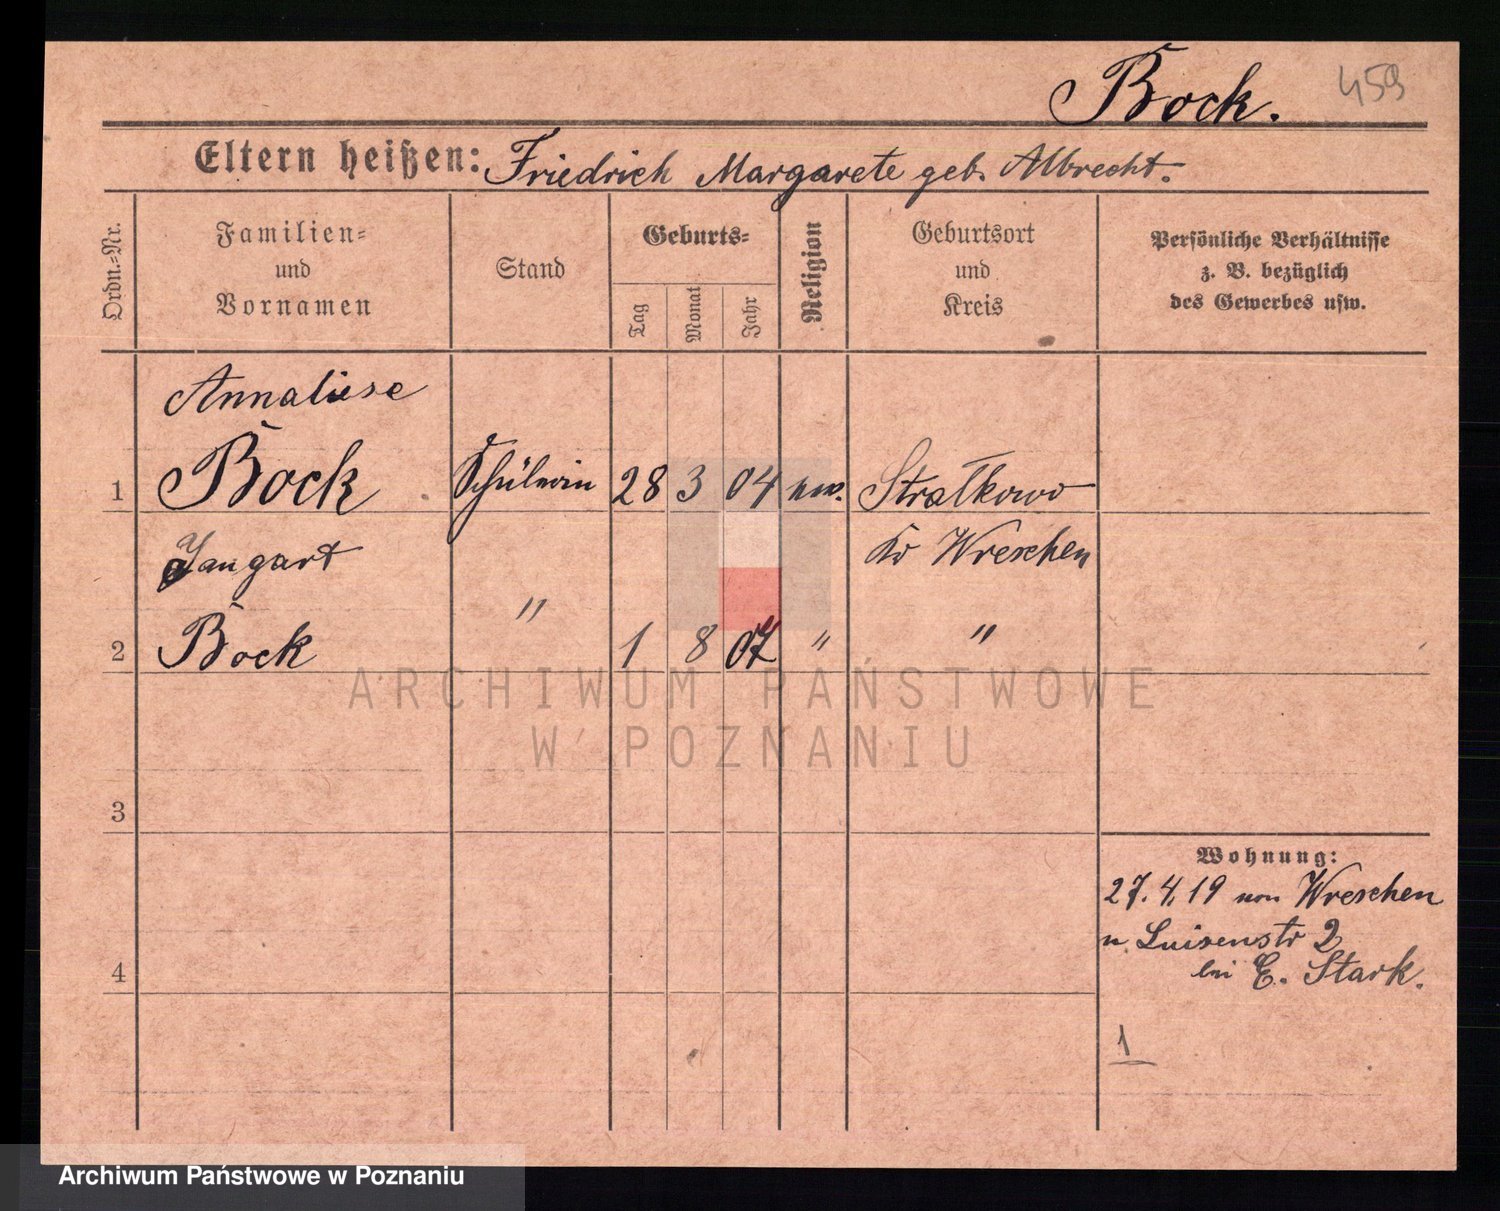 Bock. 459
Eltern heißen: Friedrich Margarete geb. Albrecht.
Ordn.=Nr.
Familien= und Vornamen
Stand
Geburts=
Tag
Monat
Jahr
Religion
Geburtsort und Kreis
Persönliche Verhältnisse z. B. bezüglich des Gewerbes usw.
Annaliese
1 Bock Schülerin 28 3 04 ev. Stralkowo
Kr Wreschen
"
2 Bock 1 8 07 " "
ARCHIWUM PAŃSTWOWE
W POZNANIU
3
4
Wohnung:
27.4.19 von Wreschen
n. Luisenstr 2
bei E. Stark.
1
Archiwum Państwowe w Poznaniu